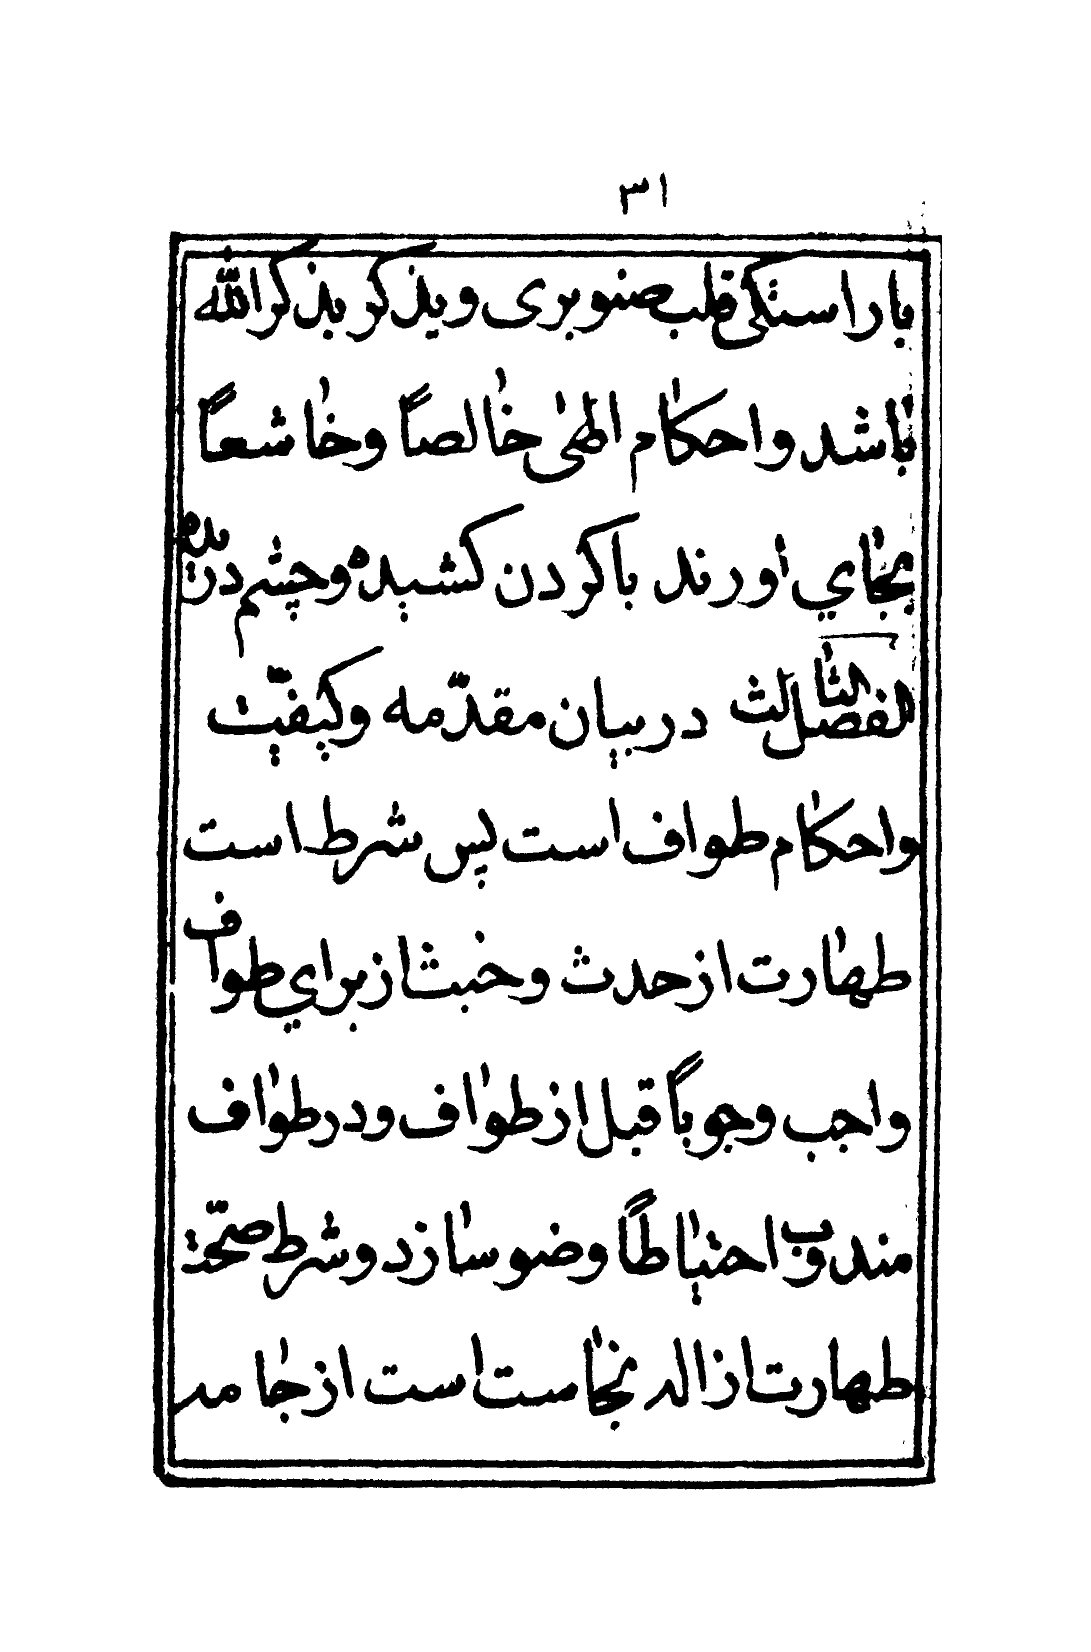 ۳۱
باراستگی قلب صنوبری و بذکر بذکر الله
باشد و احکام الهی خالصاً و خاشعاً
بجاي اورند باکردن کشیده و چشم دریده
الفصل الثالث در بیان مقدّمه و کیفیّت
و احکام طواف است پس شرط است
طهارت از حدث و خبث از براي طواف
واجب وجوباً قبل از طواف و در طواف
مندوب احتیاطاً وضو سازد و شرط صحّة
طهارت ازاله نجاست است از جامه